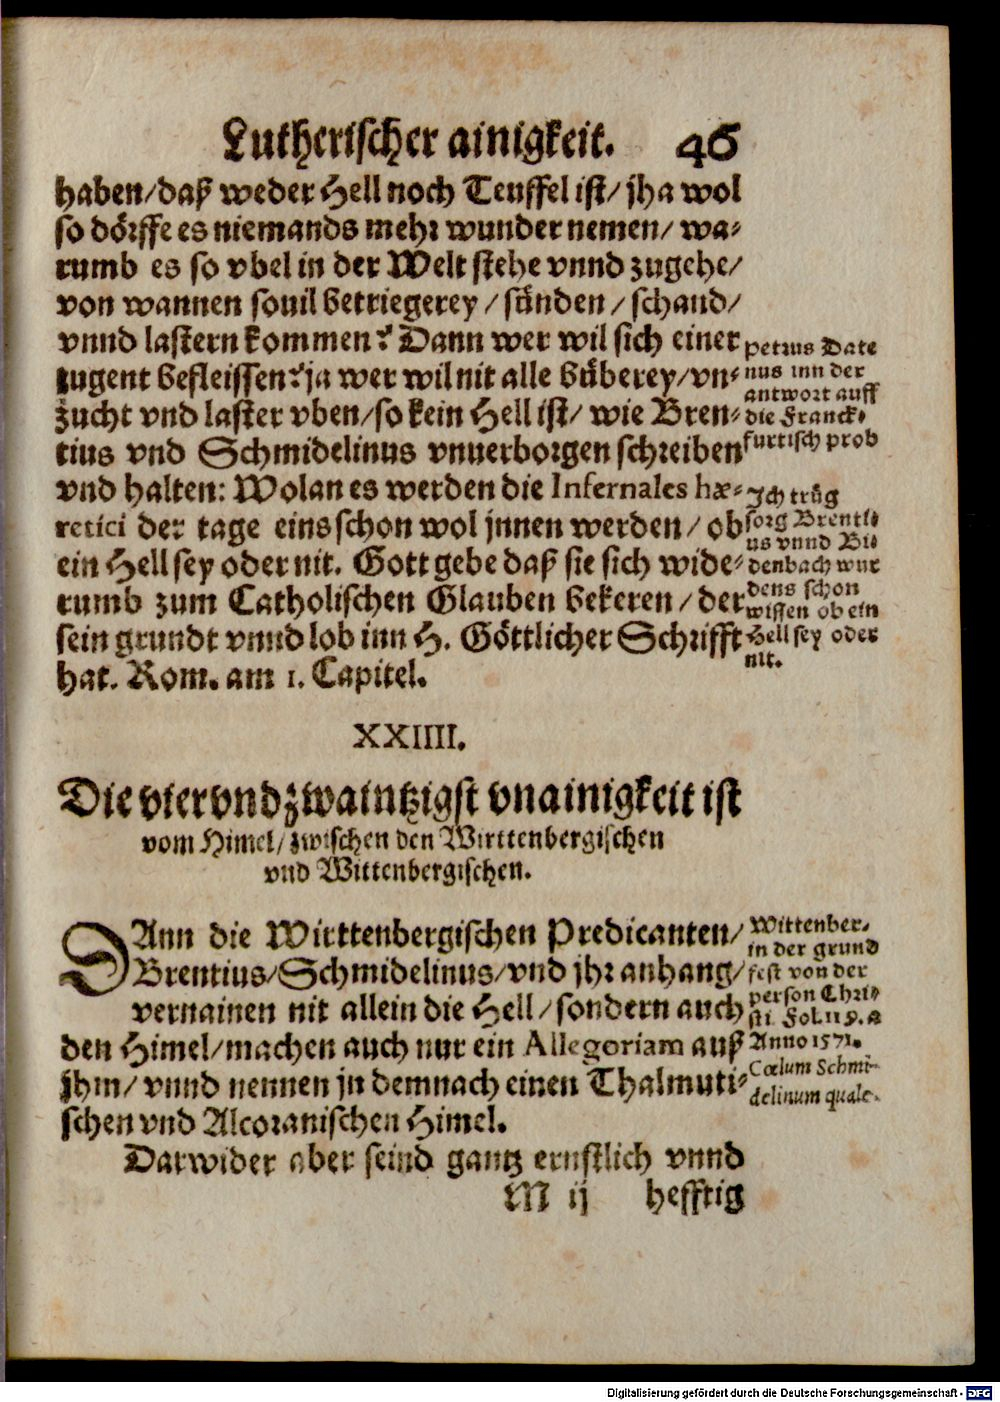 Lutherischer ainigkeit. 46
haben/daß weder Hell noch Teuffel ist/ jha wol
so dörffe es niemands mehr wunder nemen/ wa-
rumb es so vbel in der Welt stehe vnnd zugehe/
von wannen souil betriegerey / sünden / schand/
vnnd lastern kommen? Dann wer wil sich einer
tugent befleissen? ja wer wil nit alle büberey/vn-
zucht vnd laster vben/so kein Hell ist/ wie Bren-
tius vnd Schmidelinus vnuerborgen schreiben
vnd halten: Wolan es werden die Infernales hæ-
retici der tage eins schon wol jnnen werden/ ob
ein Hell sey oder nit. Gott gebe daß sie sich wide-
rumb zum Catholischen Glauben bekeren/ der
sein grundt vnnd lob inn H. Göttlicher Schrifft
hat. Rom. am 1. Capitel.
Petrus Date
nus inn der
antwort auff
die Franck-
furtisch prob
Ich trüg
sorg Brenti-
us vnnd Bi-
denbach wur
dens schon
wissen ob ein
Hell sey oder
nit.
XXIIII.
Die viervndzwaintzigst vnainigkeit ist
vom Himel/ zwischen den Wirttenbergischen
vnd Wittenbergischen.
DAnn die Wirttenbergischen Predicanten/
Brentius/Schmidelinus/vnd jhr anhang/
vernainen nit allein die Hell/sondern auch
den Himel/machen auch nur ein Allegoriam auß
jhm/ vnnd nennen jn demnach einen Thalmuti-
schen vnd Alcoranischen Himel.
Darwider aber seind gantz ernstlich vnnd
Wittenber.
in der grund
fest von der
person Chri-
sti Fol. 118. a
Anno 1571.
Cœlum Schmi-
delinum quale.
M ij hefftig
Digitalisierung gefördert durch die Deutsche Forschungsgemeinschaft - DFG